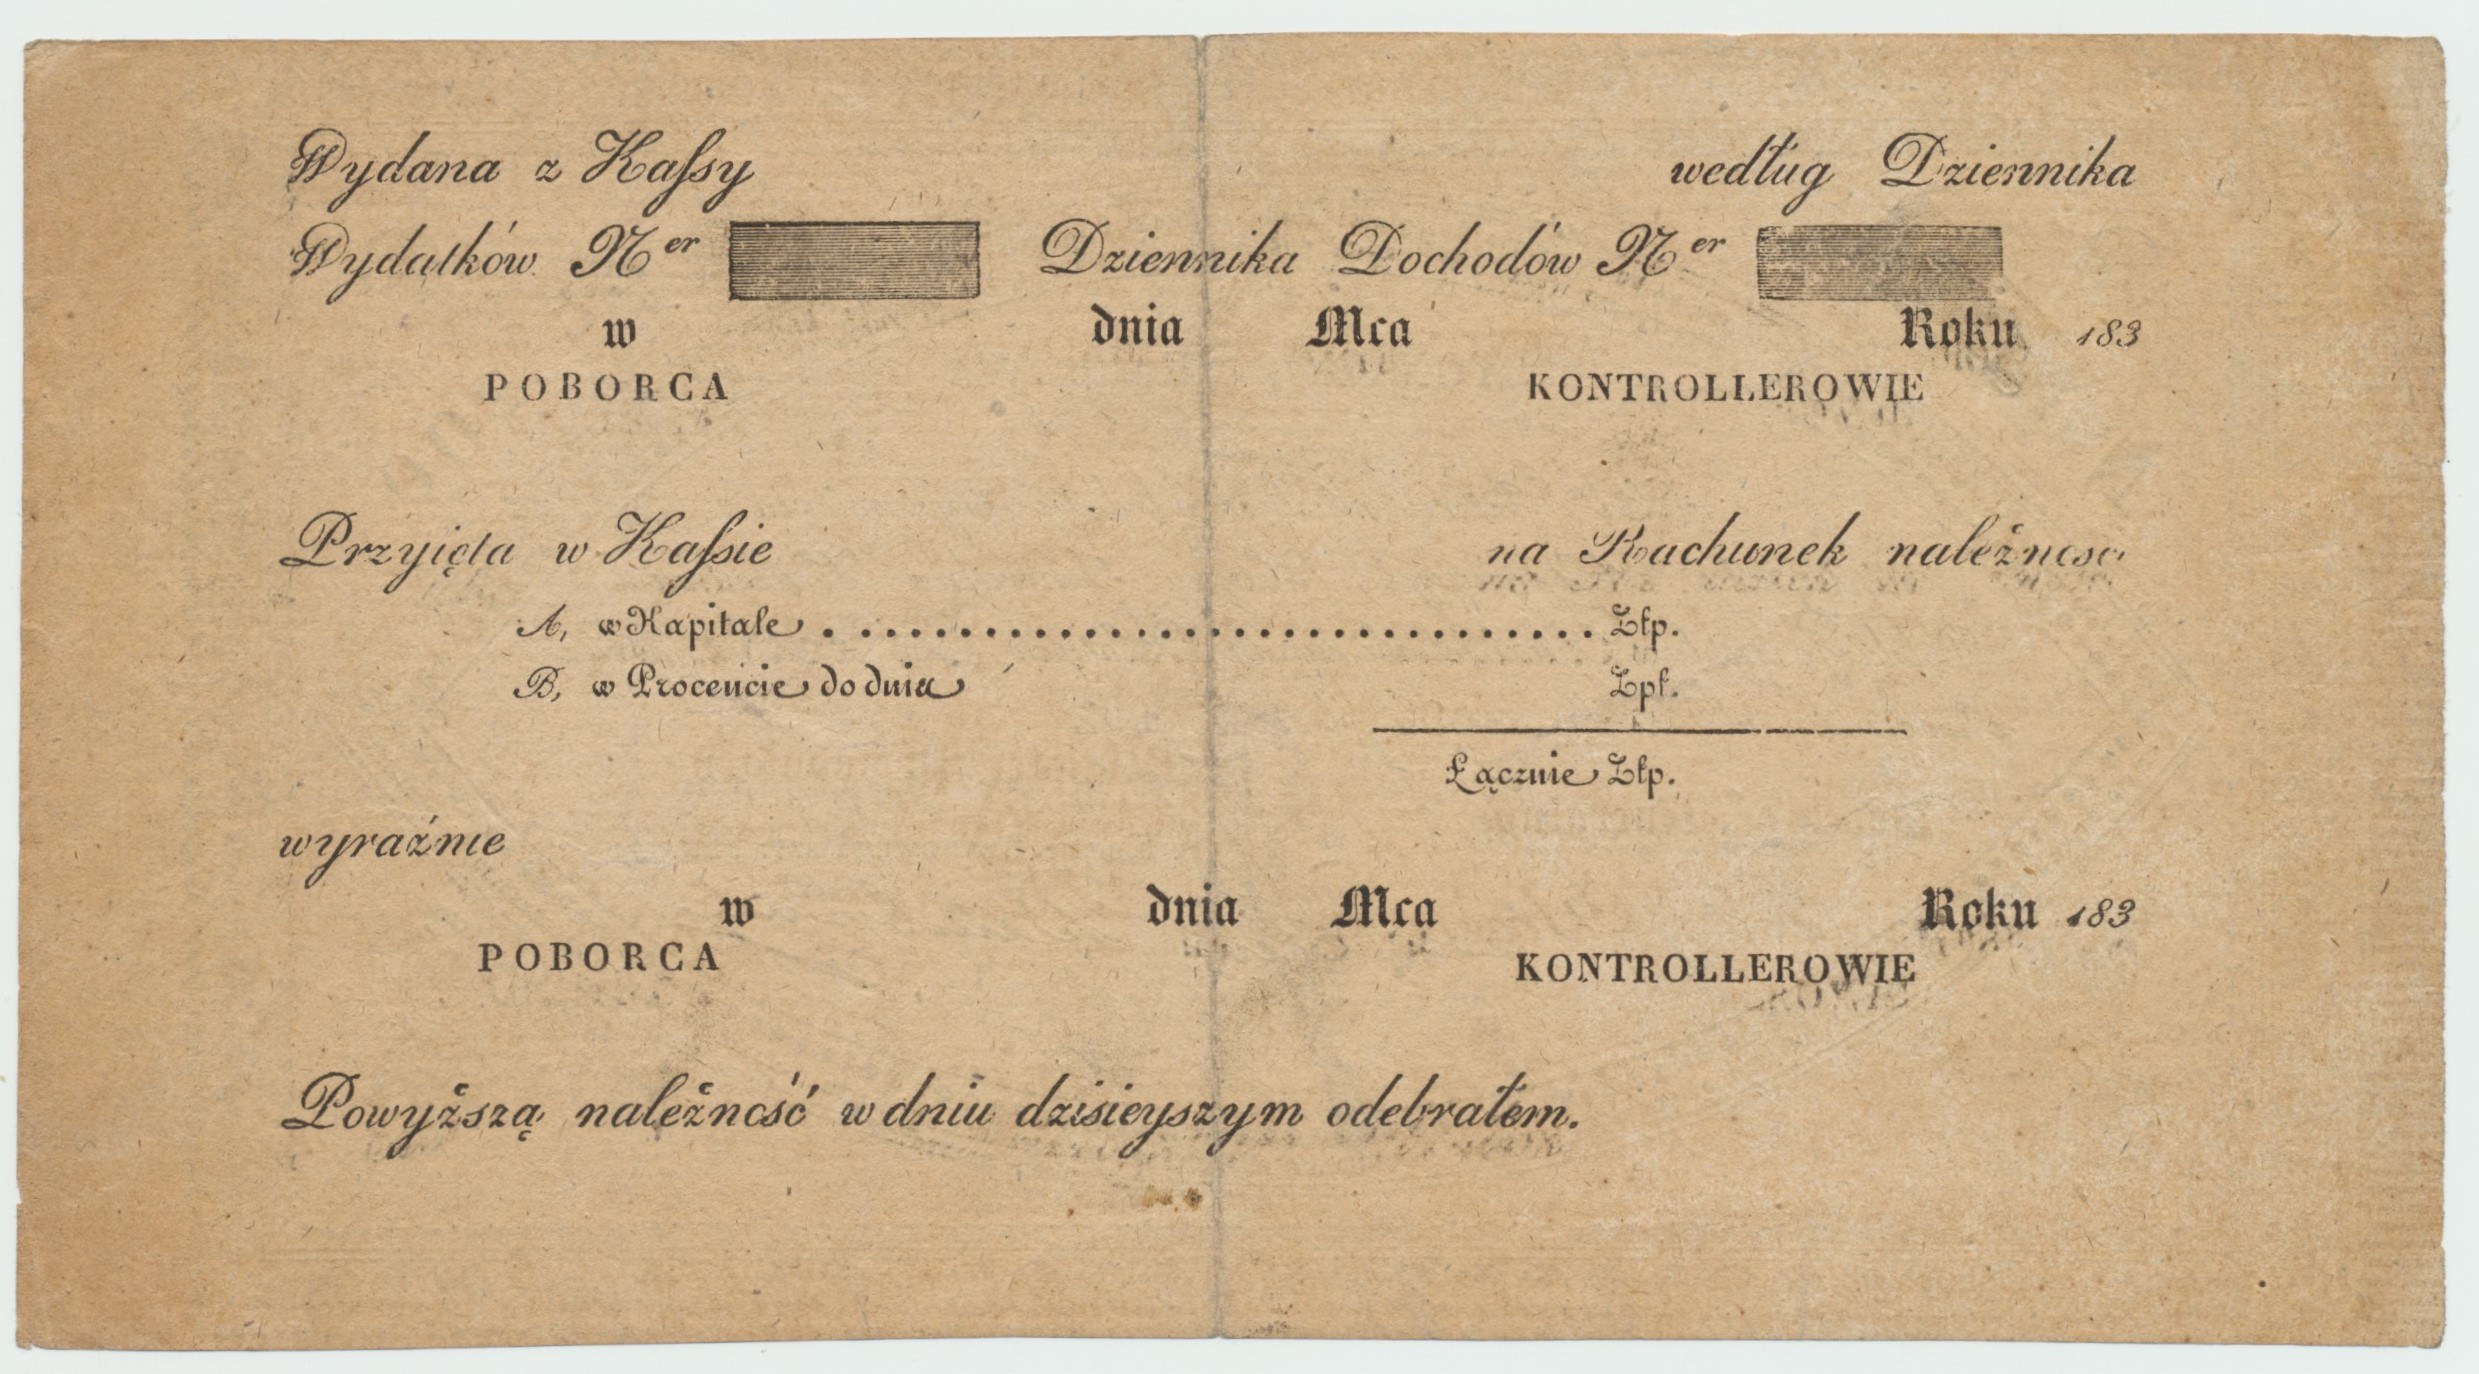 Wydana z Kaſsy według Dziennika
Wydatków Ner Dziennika Dochodów Ner
w dnia Mca Roku 183
POBORCA KONTROLLEROWIE
Przyięta w Kaſsie na Rachunek należnosci
A, w Kapitale . . . . . . . . . . . . . . . . . . . . . . . . . . . . . . . . Złp.
B, w Procencie do dnia Zpł.
Łącznie Złp.
wyraźnie
w dnia Mca Roku 183
POBORCA KONTROLLEROWIE
Powyższą należność w dniu dzisieyszym odebrałem.